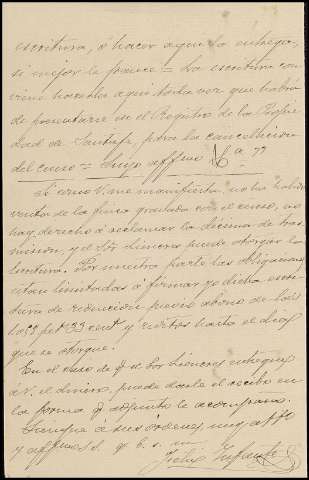 escritura, ó hacer aquí la entrega,
si mejor le parece = La escritura con
viene hacerla aquí toda vez que habrá
de presentarse en el Registro de la Propie
dad de Santafé, para la cancelación
del censo = Suyo affmo
Si como V. me manifiesta, no ha habido
venta de la finca gravada con el censo, no
hay derecho á reclamar la décima de tras
misión, y el Sor. Lioneres puede otorgar la
escritura. Por nuestra parte las obligaciones
están limitadas á firmar yo dicha escri
tura de redención previo abono de las
pts. 33 cents. y réditos hasta el día
que se otorgue.
En el caso de q. el Sor. Lioneres entregue
á V. el dinero, puede darle el recibo en
la forma q. adjunto le acompaño.
Siempre á sus órdenes muy atto.
y affmo. s.s. q. b. s. m.